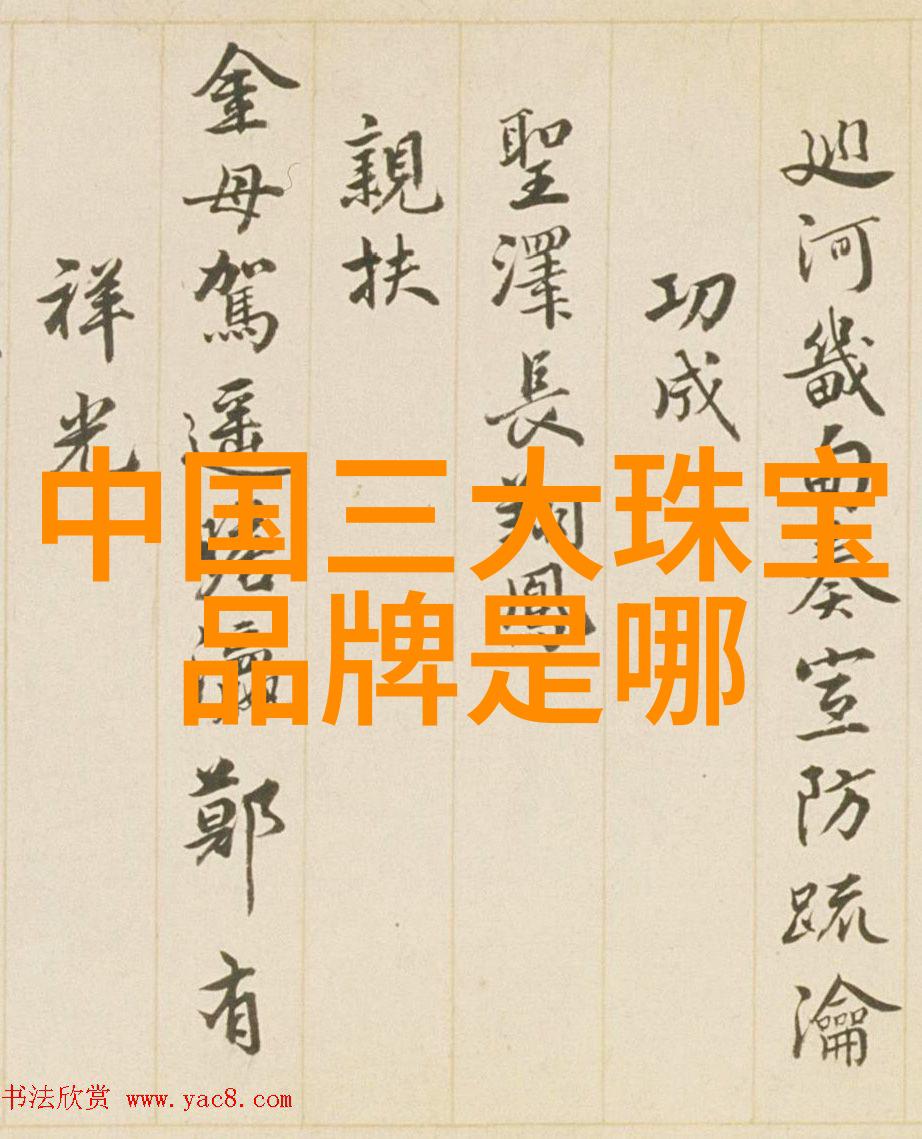 廵河畿面奏宣防疏瀹
功成
聖澤長翔鳳
親扶
金母駕遥陪瀛鄭有
祥光
中国三大珠宝
品牌是哪
书法欣赏 www.yac8.com